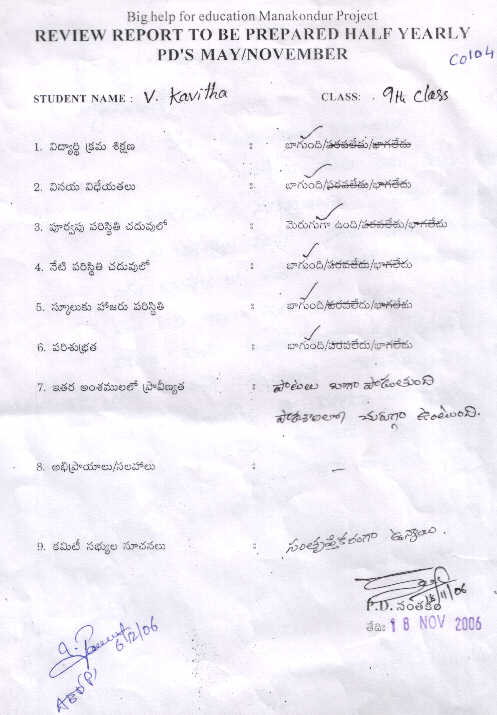 Big help for education Manakondur Project
REVIEW REPORT TO BE PREPARED HALF YEARLY
PD'S MAY/NOVEMBER
C0104
STUDENT NAME : V. Kavitha CLASS: 9th Class
1. విద్యార్థి క్రమ శిక్షణ : బాగుంది/పరవలేదు/భాగలేదు
2. వినయ విధేయతలు : బాగుంది/పరవలేదు/భాగలేదు
3. పూర్వపు పరిస్థితి చదువులో : మెరుగుగా ఉంది/పరవలేదు/భాగలేదు
4. నేటి పరిస్థితి చదువులో : బాగుంది/పరవలేదు/భాగలేదు
5. స్కూలుకు హాజరు పరిస్థితి : బాగుంది/పరవలేదు/భాగలేదు
6. పరిశుభ్రత : బాగుంది/పరవలేదు/భాగలేదు
7. ఇతర అంశములలో ప్రావీణ్యత : పాటలు బాగా పాడుతుంది
చురుగ్గా ఉంటుంది.
8. అభిప్రాయాలు/సలహాలు : –
9. కమిటీ సభ్యుల సూచనలు : సంతృప్తికరంగా ఉన్నాయి.
18/11/06
P.D. సంతకం
తేదీ: 18 NOV 2006
6/12/06